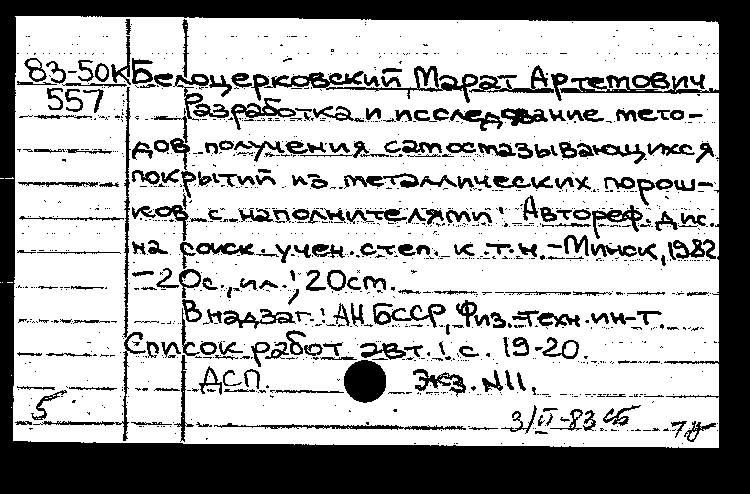 83-50К Белоцерковский, Марат Артемович.
557 Разработка и исследование мето-
дов получения самосмазывающихся
покрытий из металлических порош-
ков с наполнителями: Автореф. дис.
на соиск. учен. степ. к.т.н. - Минск, 1982
- 20с., ил.; 20см.
В надзаг.: АН БССР, Физ.-техн. ин-т.
Список работ авт.: с. 19-20.
ДСП. Экз. N11.
5 3/II-83 сб